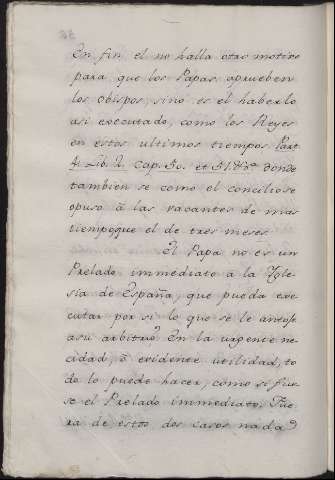 En fin el no halla otro motivo
para que los Papas aprueben
los obispos, sino es el haberlo
asi executado, como los Reyes
en estos ultimos tiempos Part.
4. Lib. 2. Cap. 50. et 51. donde
tambien se como el conciliose
opuso â las vacantes de mas
tiempo que el de tres meses
El Papa no es un
Prelado immediato a la Igle
sia de España, que pueda exe
cutar por si lo que se le antoje
asu arbitrio. En la urgente ne
cidad, ô evidente utilidad, to
do lo puede hacer, como si fue
se el Prelado immediato. Fue
ra de estos dos casos nada